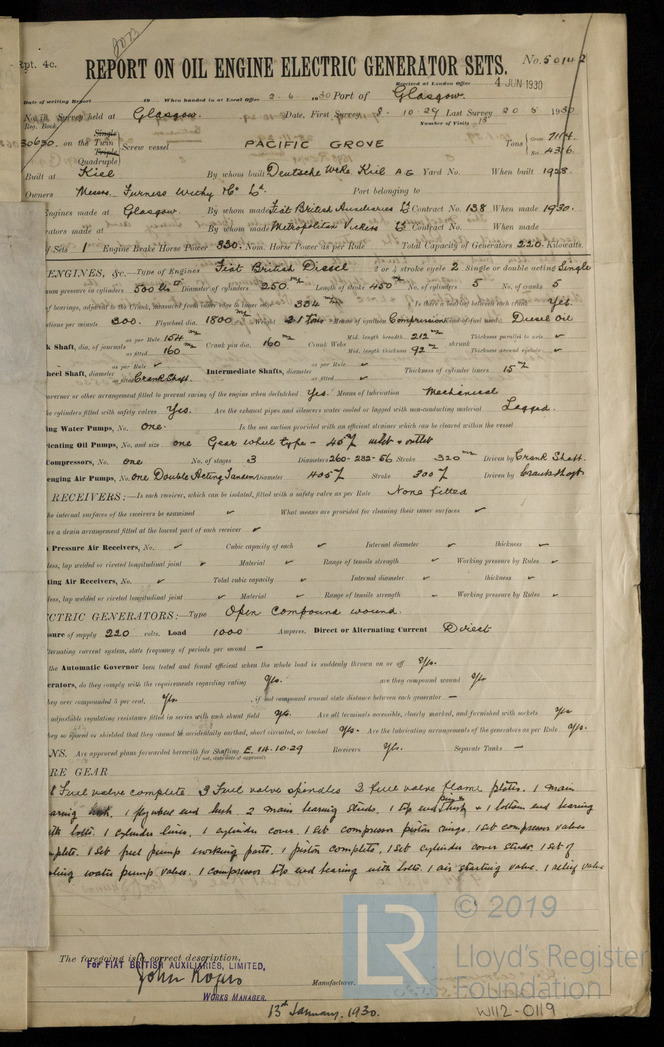 Rpt. 4c.
REPORT ON OIL ENGINE ELECTRIC GENERATOR SETS.
No. 50142
Received at London Office 4 JUN 1930
Date of writing Report 19 When handed in at Local Office 2. 6 1930 Port of Glasgow.
No. in Survey held at Glasgow. Date, First Survey 8. 10. 29 Last Survey 20 5 1930
Reg. Book. Number of Visits 15
30630. on the Single Twin Triple Quadruple Screw vessel PACIFIC GROVE Tons Gross 7114 Net 4316
Built at Kiel By whom built Deutsche Werke Kiel A G Yard No. When built 1928
Owners Messrs. Furness Withy & Co Ld. Port belonging to
Engines made at Glasgow. By whom made Fiat British Auxiliaries Ld Contract No. 138 When made 1930.
Generators made at By whom made Metropolitan Vickers Ld Contract No. When made
of Sets 1 Engine Brake Horse Power 330. Nom. Horse Power as per Rule Total Capacity of Generators 220 Kilowatts.
ENGINES, &c.—Type of Engines Fiat British Diesel 2 or 4 stroke cycle 2 Single or double acting Single
pressure in cylinders 500 lbs Diameter of cylinders 250 m/m Length of stroke 450 m/m No. of cylinders 5 No. of cranks 5
of bearings, adjacent to the Crank, measured from inner edge to inner edge 304 m/m Is there a bearing between each crank Yes
Revolutions per minute 300. Flywheel dia. 1800 m/m Weight 2.1 tons Means of ignition Compression Kind of fuel used Diesel Oil
Crank Shaft, dia. of journals as per Rule 154 m/m as fitted 160 Crank pin dia. 160 m/m Crank Webs Mid. length breadth 212 m/m Mid. length thickness 92 m/m shrunk Thickness parallel to axis Thickness around eyehole
Flywheel Shaft, diameter as per Rule as fitted Crank Shaft. Intermediate Shafts, diameter as per Rule as fitted Thickness of cylinder liners 15 m/m
governor or other arrangement fitted to prevent racing of the engine when declutched Yes. Means of lubrication Mechanical
the cylinders fitted with safety valves Yes. Are the exhaust pipes and silencers water cooled or lagged with non-conducting material Lagged.
Cooling Water Pumps, No. one. Is the sea suction provided with an efficient strainer which can be cleared within the vessel
Lubricating Oil Pumps, No. and size one Gear wheel type - 40 m/m inlet & outlet
Air Compressors, No. one No. of stages 3 Diameters 260-232-56 Stroke 320 m/m Driven by Crank Shaft.
Scavenging Air Pumps, No. one Double Acting Tandem Diameter 405 m/m Stroke 300 m/m Driven by Crank Shaft
RECEIVERS:—Is each receiver, which can be isolated, fitted with a safety valve as per Rule None fitted
the internal surfaces of the receivers be examined What means are provided for cleaning their inner surfaces
there a drain arrangement fitted at the lowest part of each receiver
Pressure Air Receivers, No. Cubic capacity of each Internal diameter thickness
less, lap welded or riveted longitudinal joint Material Range of tensile strength Working pressure by Rules
Starting Air Receivers, No. Total cubic capacity Internal diameter thickness
less, lap welded or riveted longitudinal joint Material Range of tensile strength Working pressure by Rules
ELECTRIC GENERATORS:—Type Open compound wound.
Pressure of supply 220 volts. Load 1000 Amperes. Direct or Alternating Current Direct
alternating current system, state frequency of periods per second —
the Automatic Governor been tested and found efficient when the whole load is suddenly thrown on or off Yes.
Generators, do they comply with the requirements regarding rating Yes. are they compound wound Yes
they over compounded 5 per cent. Yes. if not compound wound state distance between each generator —
adjustable regulating resistance fitted in series with each shunt field Yes. Are all terminals accessible, clearly marked, and furnished with sockets Yes
they so spaced or shielded that they cannot be accidentally earthed, short circuited, or touched Yes. Are the lubricating arrangements of the generators as per Rule Yes.
PLANS. Are approved plans forwarded herewith for Shafting E. 14.10.29 Receivers Yes. Separate Tanks —
(If not, state date of approval)
SPARE GEAR
1 Fuel valve complete 3 Fuel valve spindles 3 fuel valve flame plates. 1 main
bearing bush. 1 flywheel end bush. 2 main bearing studs. 1 top end bush & 1 bottom end bearing
with bolts. 1 cylinder liner. 1 cylinder cover. 1 set compressor piston rings. 1 set compressor valves
complete. 1 set fuel pump working parts. 1 piston complete, 1 set cylinder cover studs. 1 set of
cooling water pump valves. 1 compressor top end bearing with bolts. 1 air starting valve. 1 relief valve
The foregoing is a correct description,
For FIAT BRITISH AUXILIARIES, LIMITED,
John Rogers
WORKS MANAGER.
Manufacturer.
13th January, 1930.
© 2019
LR Lloyd's Register
Foundation
W112-0119